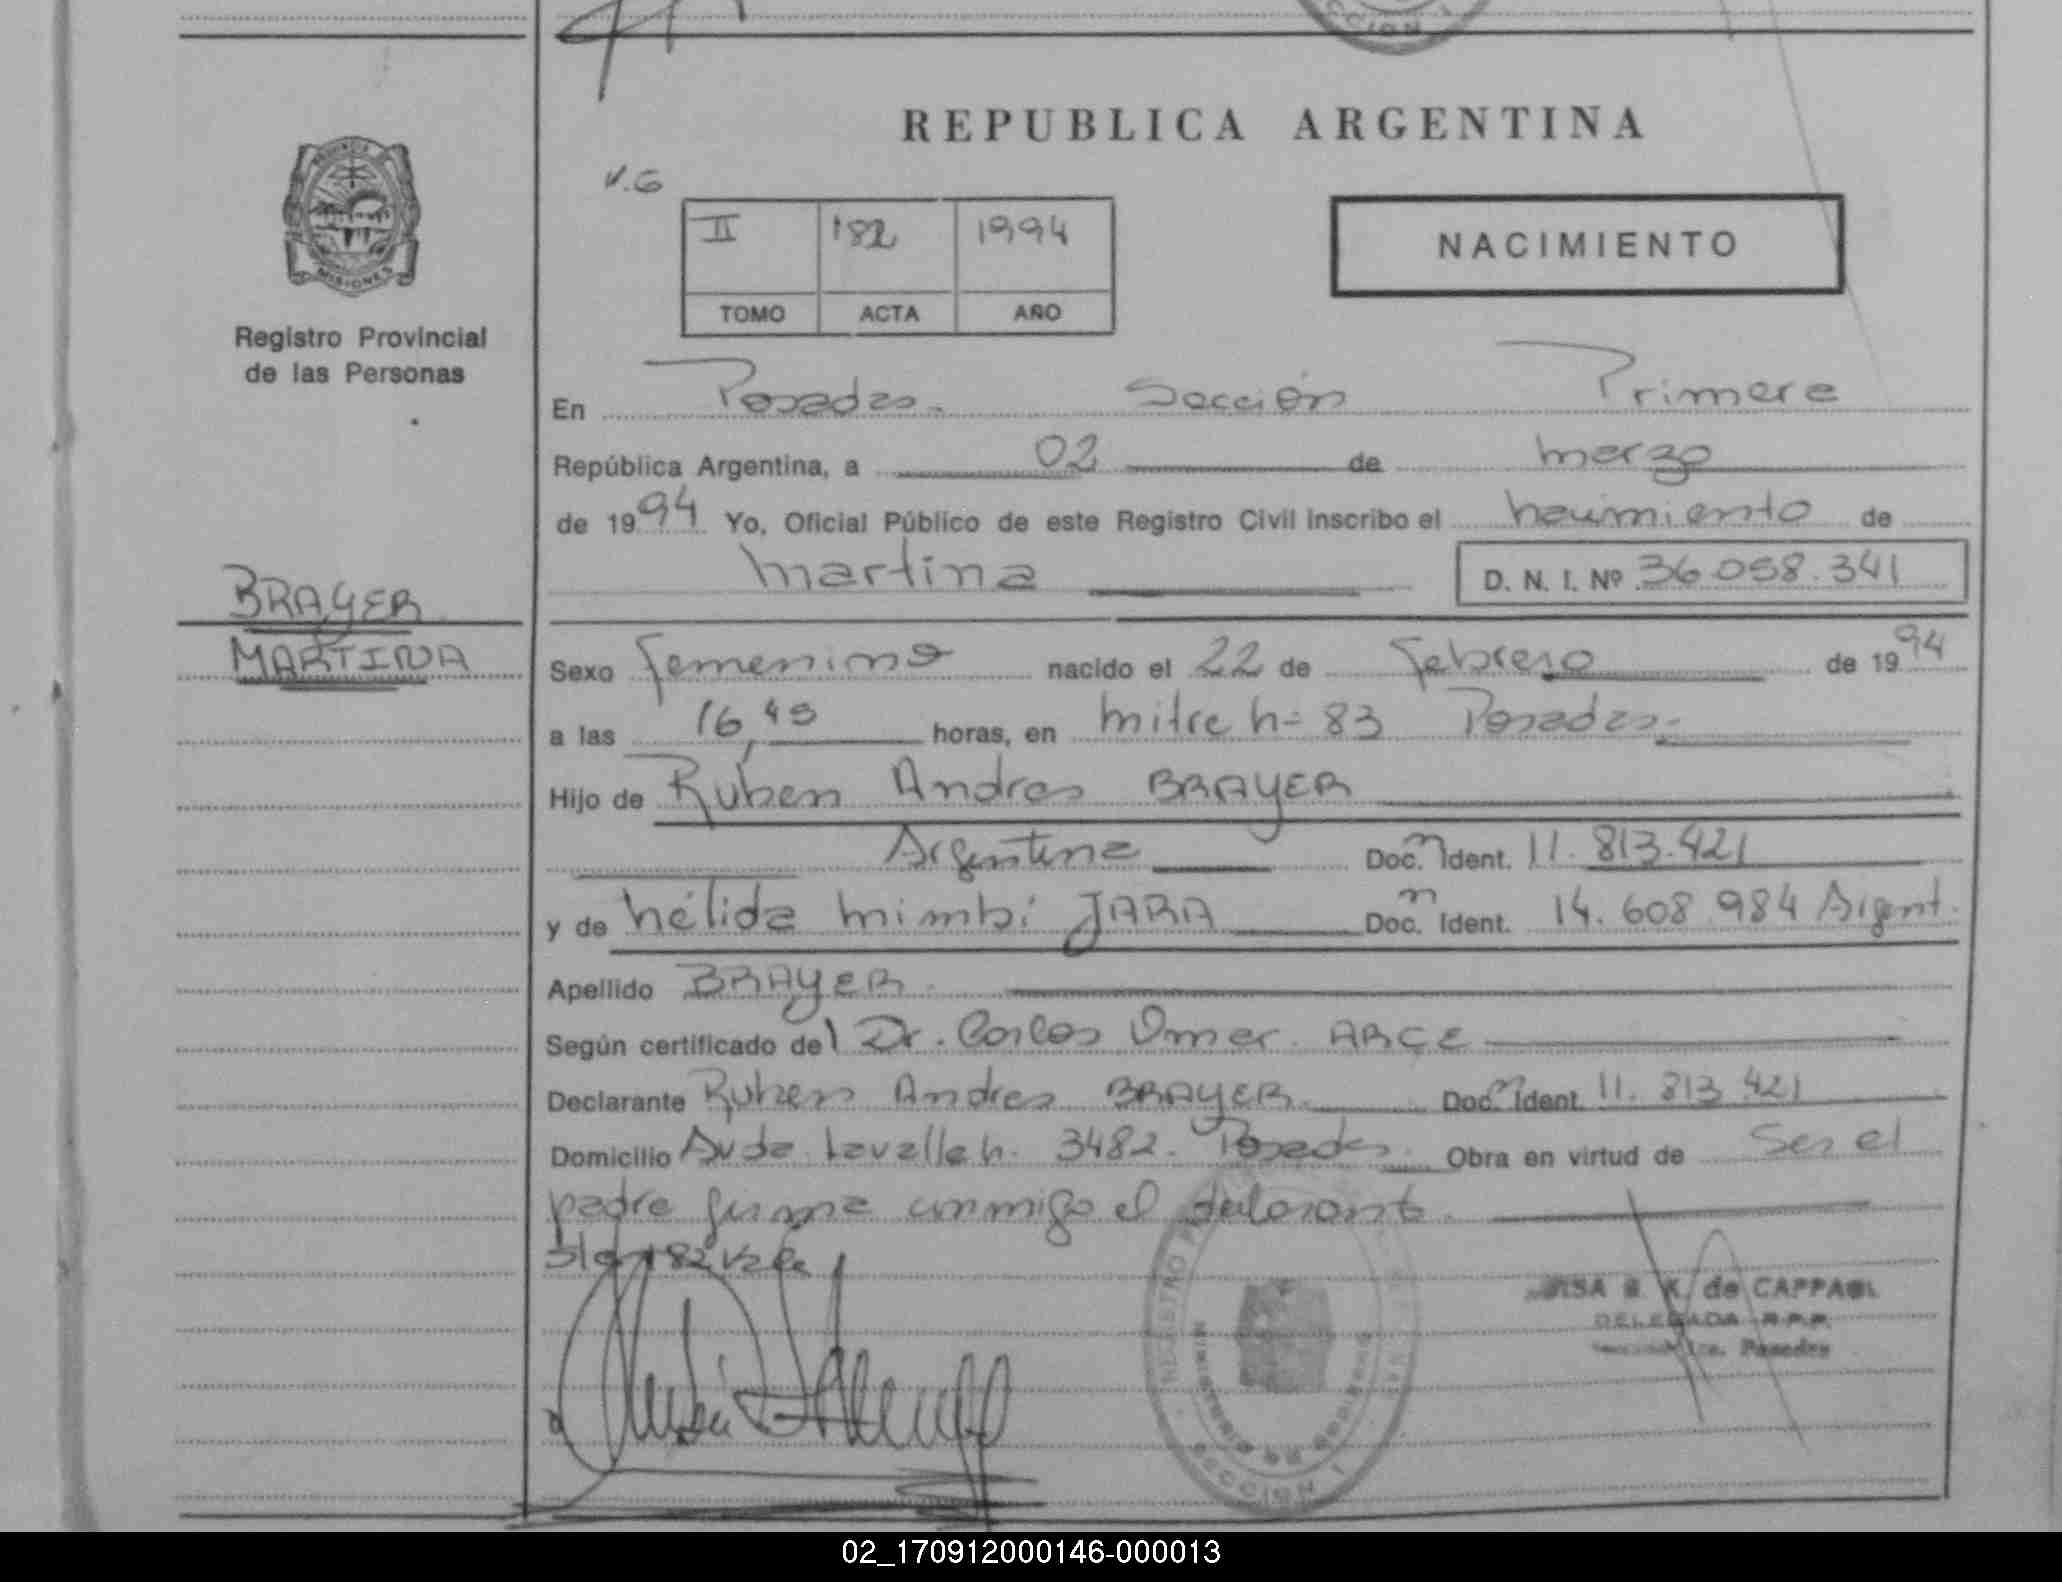 SECCION 1
REPUBLICA ARGENTINA
PROVINCIA
MISIONES
Registro Provincial
de las Personas
V.G
II 182 1994
TOMO ACTA AÑO
NACIMIENTO
En Posadas. Sección Primera
República Argentina, a 02 de marzo
de 1994 Yo, Oficial Público de este Registro Civil inscribo el nacimiento de
Martina D. N. I. Nº 36.058.341
BRAYER
MARTINA
Sexo femenino nacido el 22 de Febrero de 1994
a las 16,45 horas, en Mitre n= 83 Posadas.-
Hijo de Ruben Andres BRAYER
Argentina Doc. Ident. 11.813.421
y de Nélida Mimbi JARA Doc. Ident. 14.608.984 Argent.
Apellido BRAYER.
Según certificado del Dr. Carlos Omar. ARCE
Declarante Ruben Andres BRAYER. Doc. Ident. 11.813.421
Domicilio Avda. Lavalle n. 3482. Posadas. Obra en virtud de Ser el
padre firma conmigo el declarante.
182 vale
de CAPPAGLI
DELEGADA R.P.P.
Posadas
REGISTRO
MINISTERIO DE GOBIERNO
SECCION 1
02_170912000146-000013